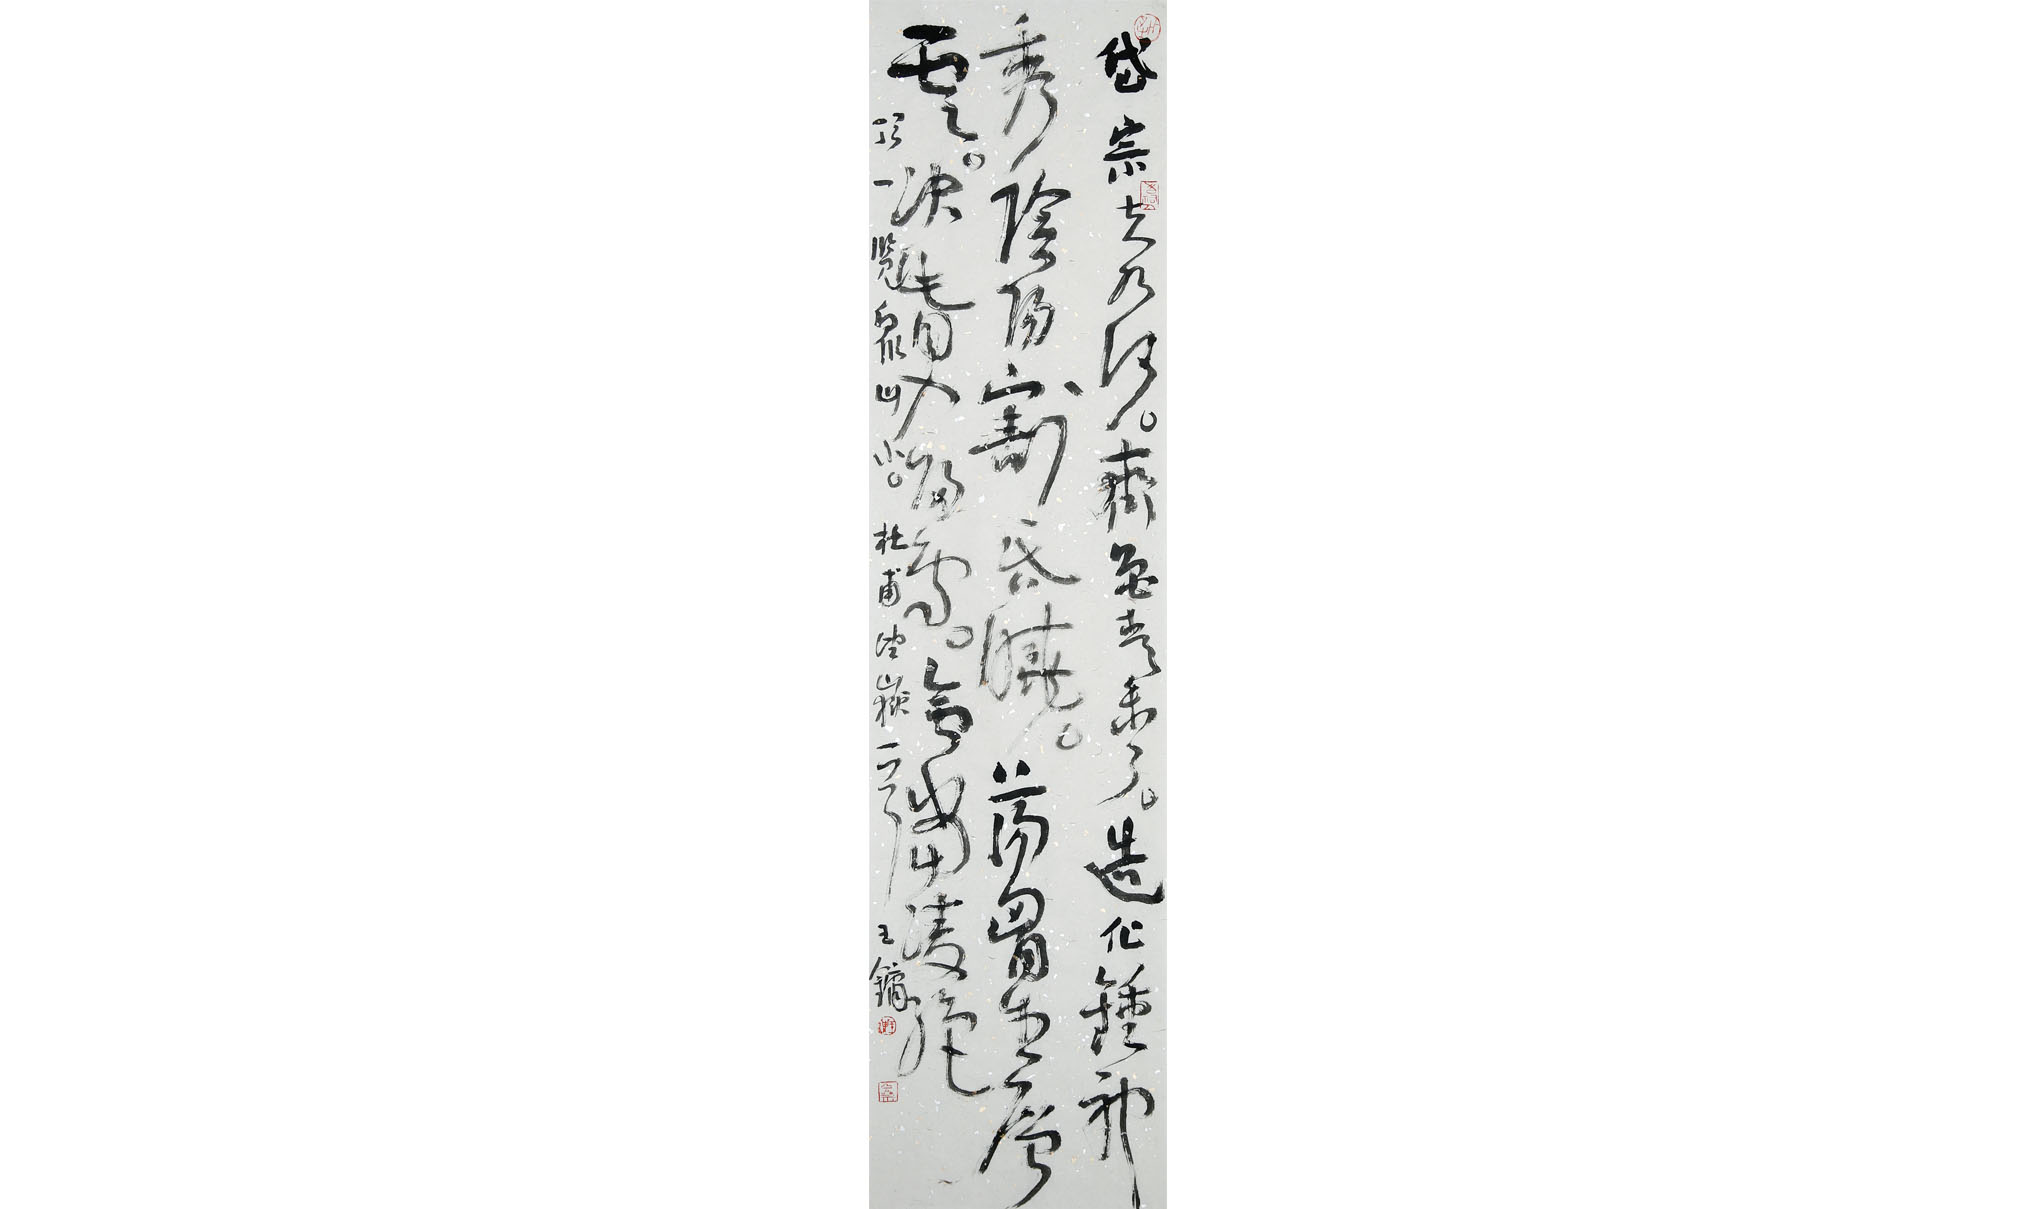 岱宗夫如何。齊魯青未了。造化鍾神
秀陰陽割昏曉。蕩胸生層
雲。決眥入歸鳥。會當凌絕
頂一覽眾山小。杜甫望嶽一首 王鏞